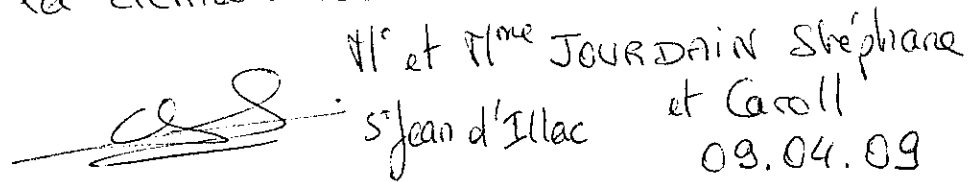 Mr et Mme JOURDAIN Stéphane
et Caroll
St Jean d'Illac
09.04.09